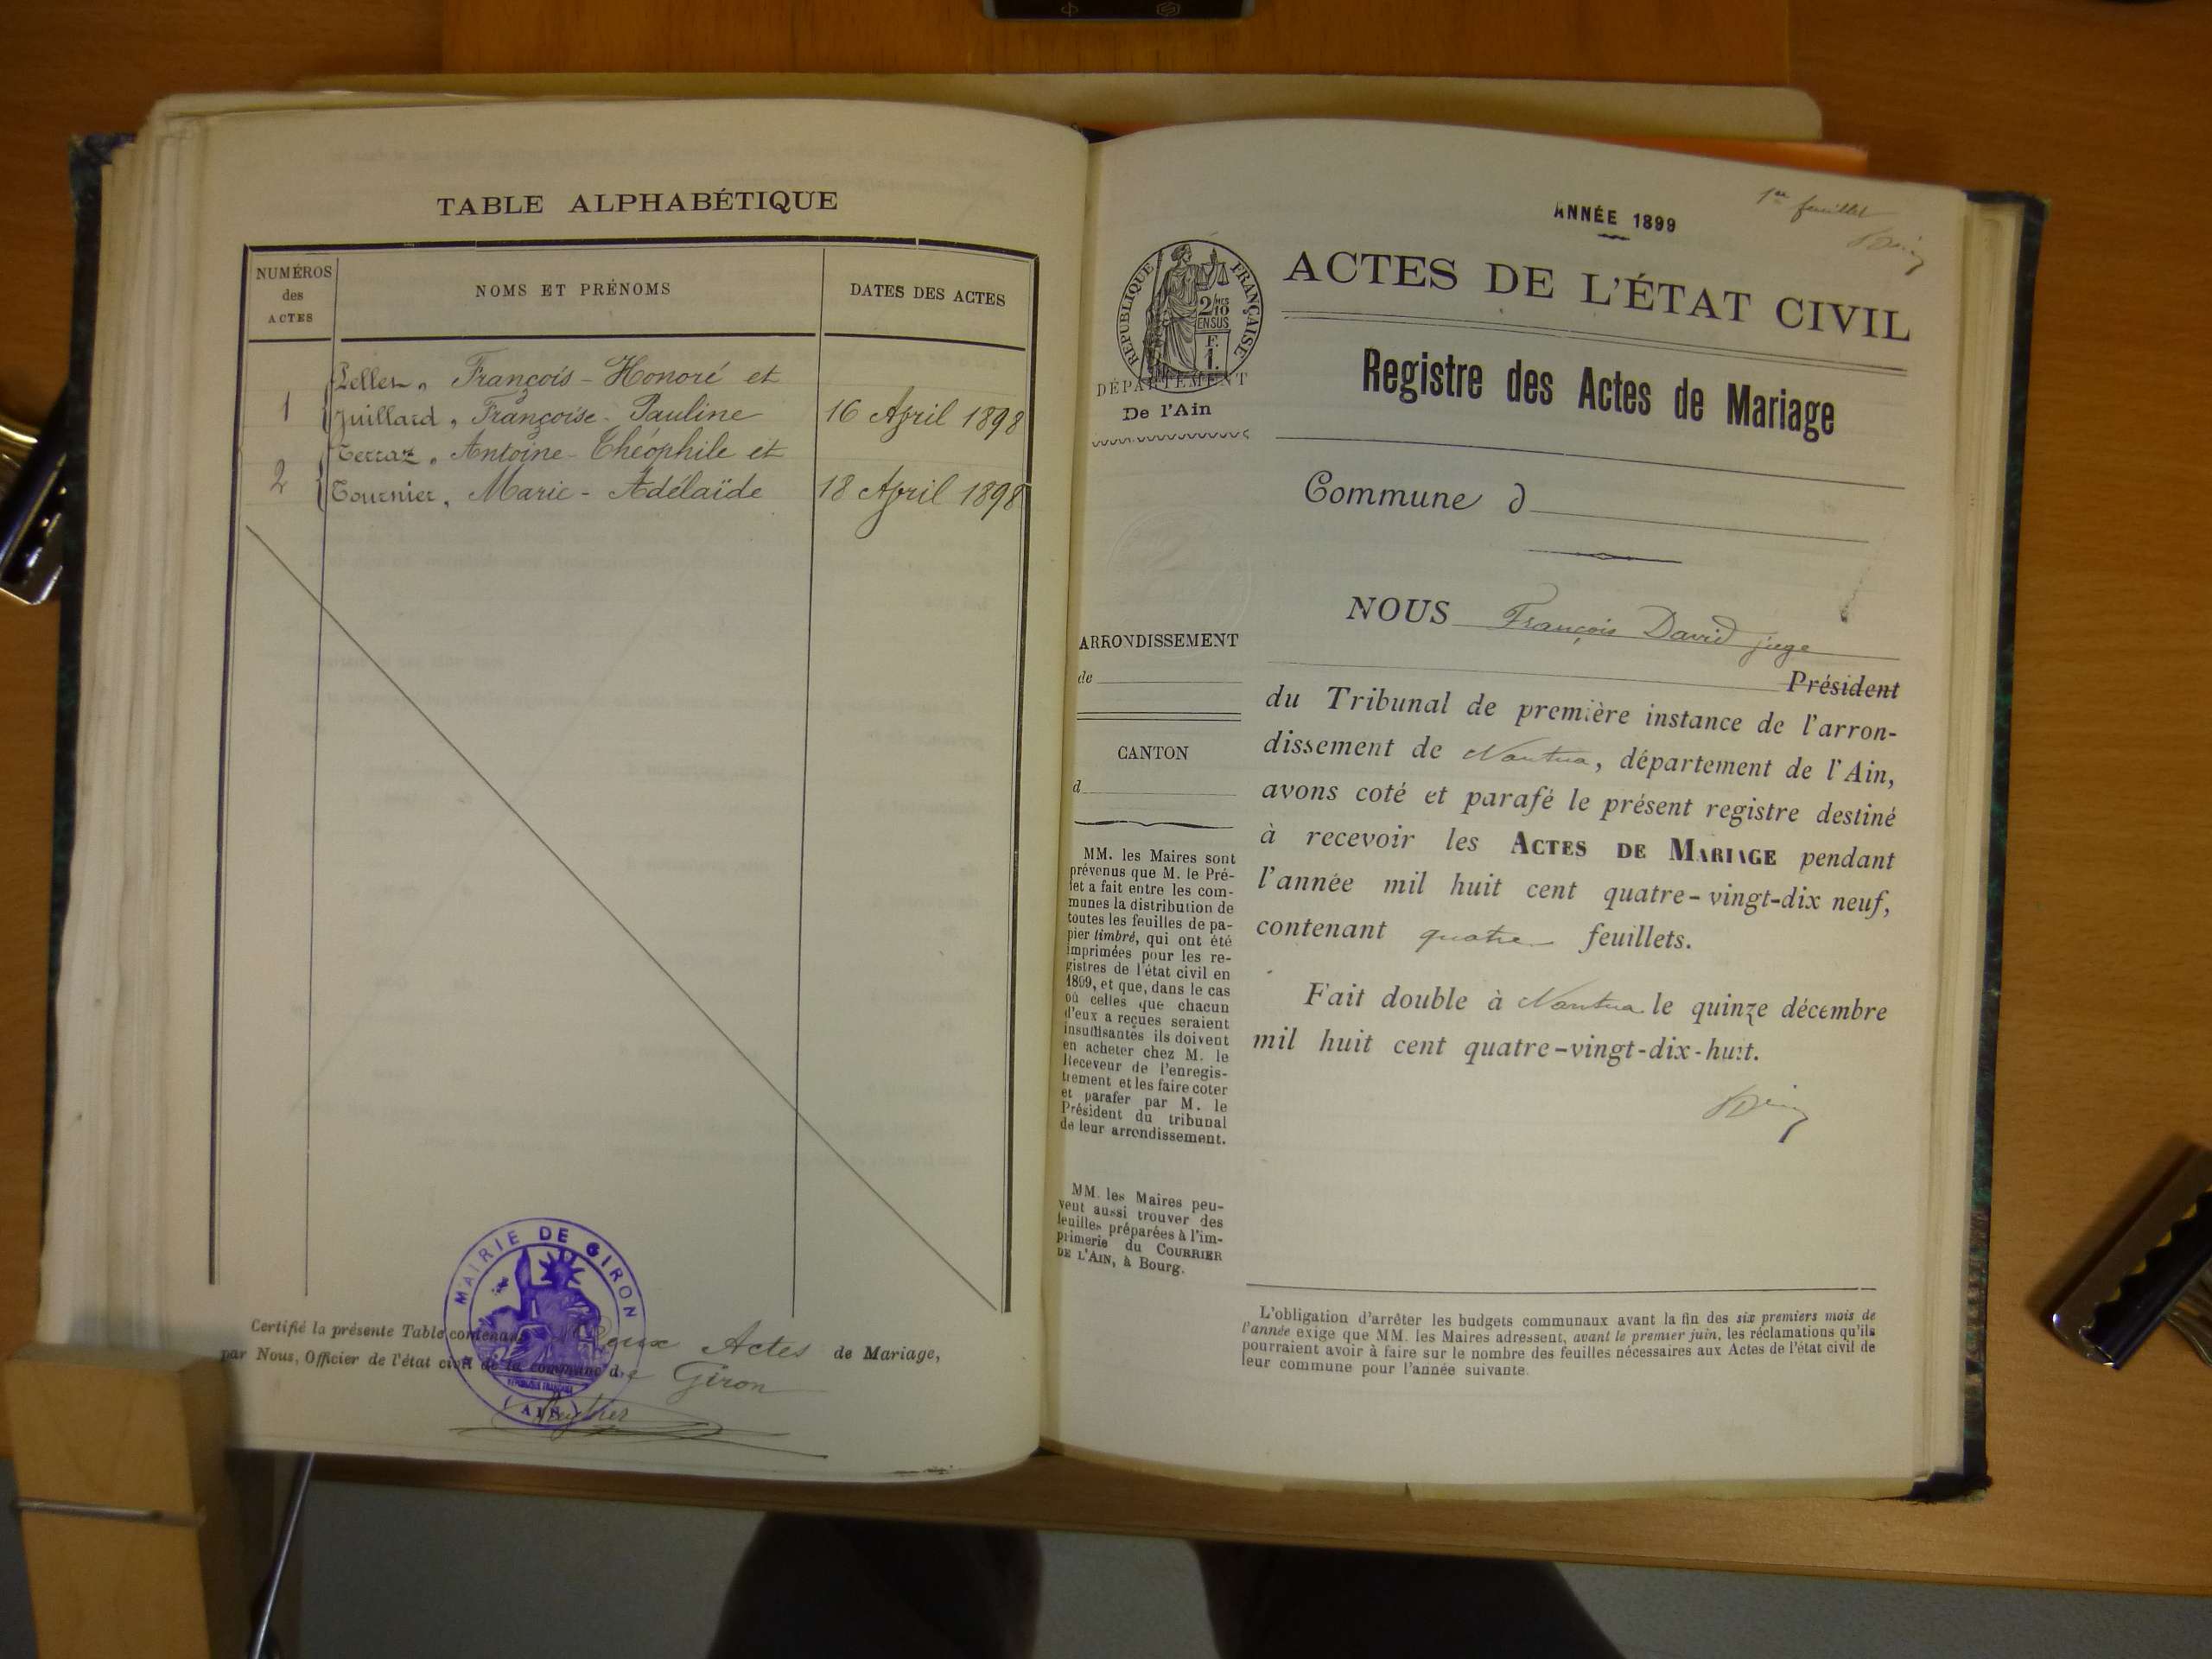 TABLE ALPHABÉTIQUE
NUMÉROS
des
ACTES
NOMS ET PRÉNOMS
DATES DES ACTES
François-Honoré et
1 Juillard, Françoise-Pauline 16 April 1898
Terraz, Antoine-Théophile et
2 Tournier, Marie-Adélaïde 18 April 1898
MAIRIE DE GIRON
(AIN)
Certifié la présente Table contenant Deux Actes de Mariage,
par Nous, Officier de l'état civil de la commune de Giron
1er feuillet
ANNÉE 1899
RÉPUBLIQUE FRANÇAISE
2/10
EN SUS
F.
1.
ACTES DE L'ÉTAT CIVIL
DÉPARTEMENT
De l'Ain
Registre des Actes de Mariage
Commune d
NOUS François David juge
Président
du Tribunal de première instance de l'arron-
dissement de Nantua, département de l'Ain,
avons coté et parafé le présent registre destiné
à recevoir les ACTES DE MARIAGE pendant
l'année mil huit cent quatre-vingt-dix neuf,
contenant quatre feuillets.
Fait double à Nantua le quinze décembre
mil huit cent quatre-vingt-dix-huit.
ARRONDISSEMENT
de
CANTON
d
MM. les Maires sont
prévenus que M. le Pré-
fet a fait entre les com-
munes la distribution de
toutes les feuilles de pa-
pier timbré, qui ont été
imprimées pour les re-
gistres de l'état civil en
1899, et que, dans le cas
où celles que chacun
d'eux a reçues seraient
insuffisantes ils doivent
en acheter chez M. le
Receveur de l'enregis-
trement et les faire coter
et parafer par M. le
Président du tribunal
de leur arrondissement.
MM. les Maires peu-
vent aussi trouver des
feuilles préparées à l'im-
primerie du COURRIER
DE L'AIN, à Bourg.
L'obligation d'arrêter les budgets communaux avant la fin des six premiers mois de
l'année exige que MM. les Maires adressent, avant le premier juin, les réclamations qu'ils
pourraient avoir à faire sur le nombre des feuilles nécessaires aux Actes de l'état civil de
leur commune pour l'année suivante.